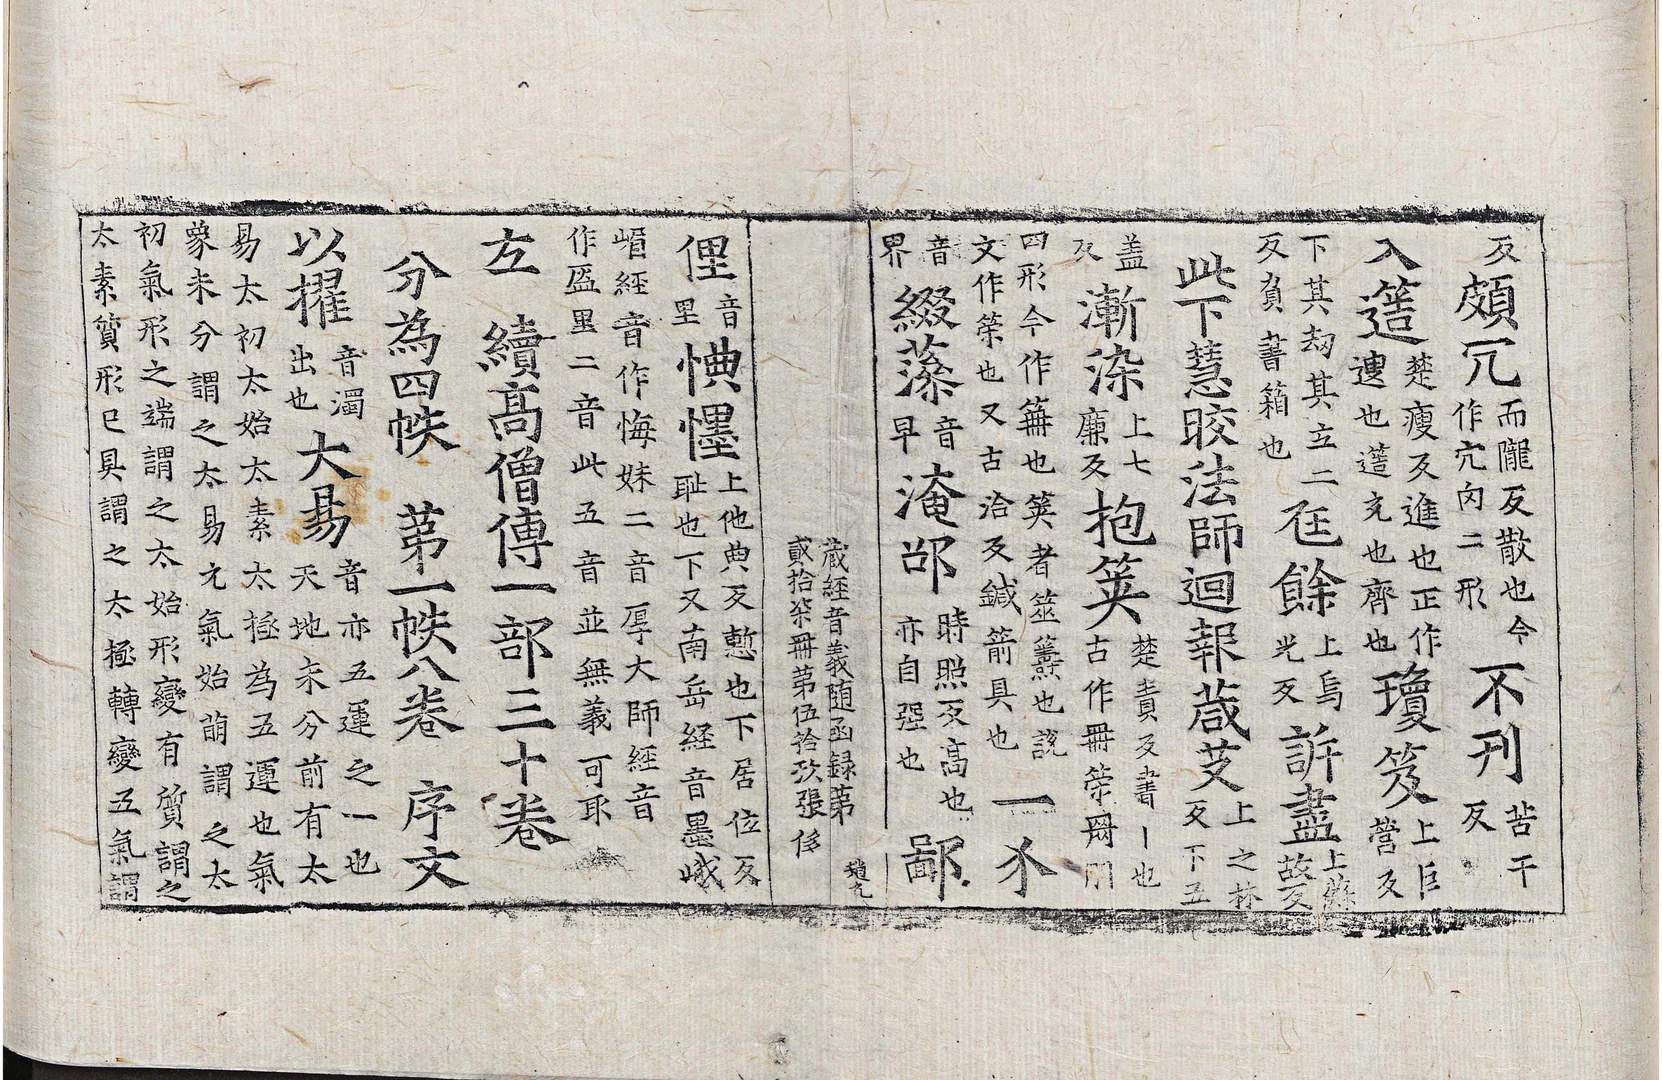 反頗冗而隴反散也今作宂冈二形不刊苦干反
入簉楚瘦反進也正作遚也䔏充也齊也瓊笈上巨營反
下其刼其立二反負書箱也尫餘上烏光反訴盡上蘇故反
此下慧皎法師迴報葴芟上之林反下五
盖反漸染上七廉反抱筴楚責反書丨也古作冊䇲𠕋𠕁
四形今作箒也筴者筮蓍也說文作䇲也又古洽反鍼箭具也一尒
音界綴藻音早淹邵時照反高也亦自强也鄙
藏經音義随函録第貳拾柒冊第伍拾玖張 侈
趙九
俚音里㥏㦄上他典反慙也下居位反耻也下又南岳經音墨峨
嵋經音作悔妹二音厚大師經音作㱀里二音此五音並無義可取
左 續高僧傳一部三十卷
分為四帙 苐一帙八卷 序文
以擢音濁出也大易音亦五運之一也天地未分前有太
易太初太始太素太極為五運也氣象未分謂之太易元氣始萌謂之太
初氣形之端謂之太始形變有質謂之太素質形已具謂之太極轉變五氣謂